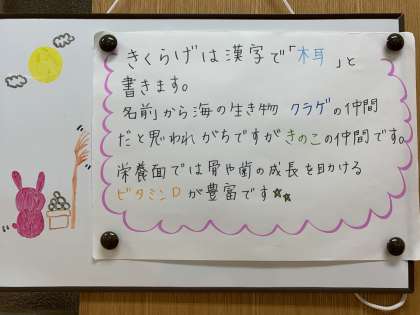 きくらげは漢字で「木耳」と
書きます。
名前から海の生き物 クラゲの仲間
だと思われがちですがきのこの仲間です。
栄養面では骨や歯の成長を助ける
ビタミンDが豊富です☆☆